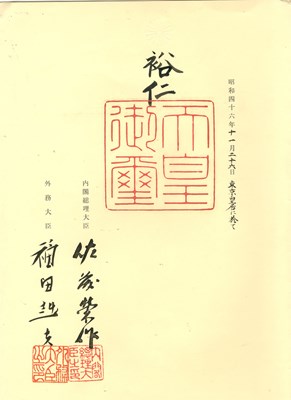 昭和四十六年十一月二十九日東京皇居に於て
裕仁
天皇御璽
内閣総理大臣
佐藤榮作
外務大臣
福田赳夫